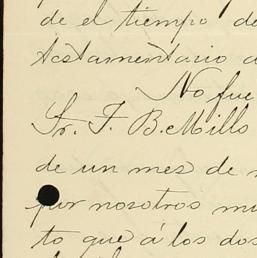 de el tiempo de
testamentario a
No fue
Sr. F. B. Millo
de un mes de
por nosotros mu
to que á los dos